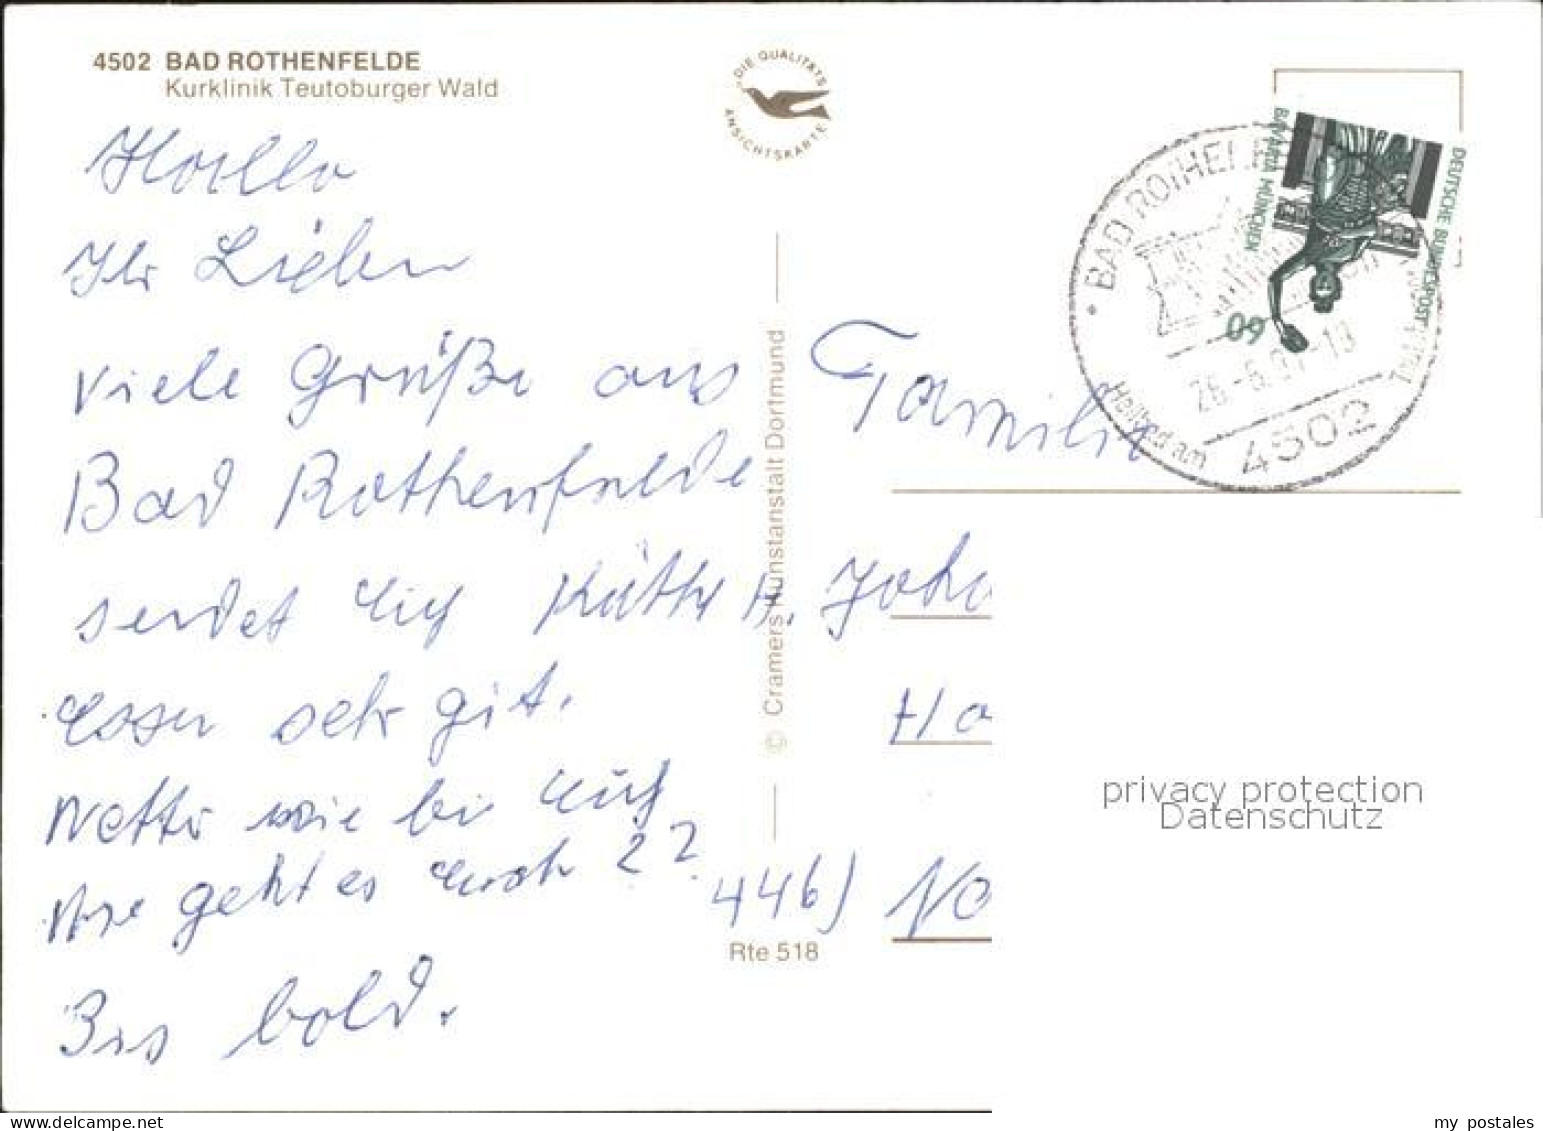 4502 BAD ROTHENFELDE
Kurklinik Teutoburger Wald
DIE QUALITÄTS
ANSICHTSKARTE
Hallo
Ihr Lieben
viele Grüße aus
Bad Rothenfelde
sendet Euch Käthe
Essen sehr gut.
Wetter wie bei Euch
Wie geht es Euch ??
Bis bald.
© Cramers Kunstanstalt Dortmund
Rte 518
Familie
Joha
Ha
4461 No
DEUTSCHE BUNDESPOST
BAVARIA MÜNCHEN
60
BAD ROTHE
Heilbad am
4502
privacy protection
Datenschutz
my postales